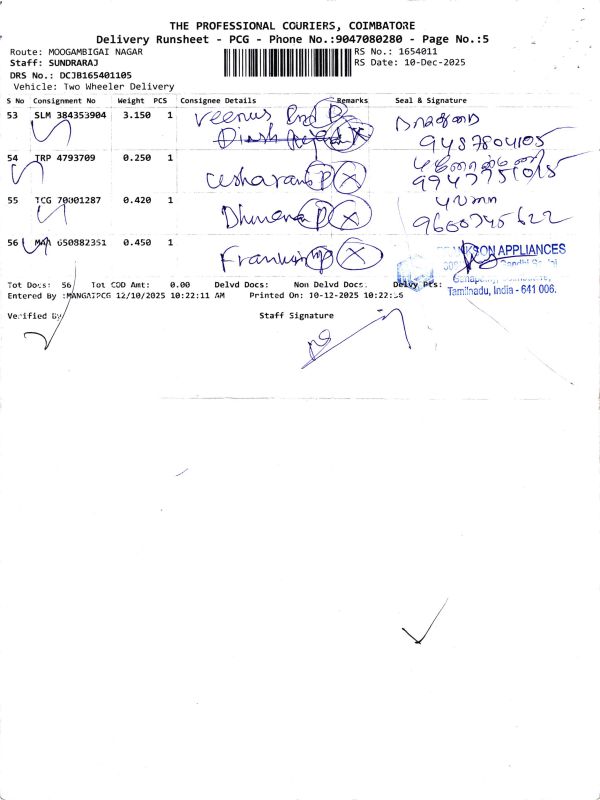 THE PROFESSIONAL COURIERS, COIMBATORE
Delivery Runsheet - PCG - Phone No.:9047080280 - Page No.:5
Route: MOOGAMBIGAI NAGAR
RS No.: 1654011
Staff: SUNDRARAJ
RS Date: 10-Dec-2025
DRS No.: DCJB165401105
Vehicle: Two Wheeler Delivery
S No Consignment No Weight PCS Consignee Details Remarks Seal & Signature
53 SLM 384353904 3.150 1 Veenus Ind P
9487804105
54 TRP 4793709 0.250 1 P X
55 TCG 70001287 0.420 1 P X
9600745622
56 MAA 650882351 0.450 1 P X
APPLIANCES
Tamilnadu, India - 641 006.
Tot Docs: 56 Tot COD Amt: 0.00 Delvd Docs: Non Delvd Docs: Delvy Pts:
Entered By :MANGAIPCG 12/10/2025 10:22:11 AM Printed On: 10-12-2025 10:22:16
Verified By
Staff Signature